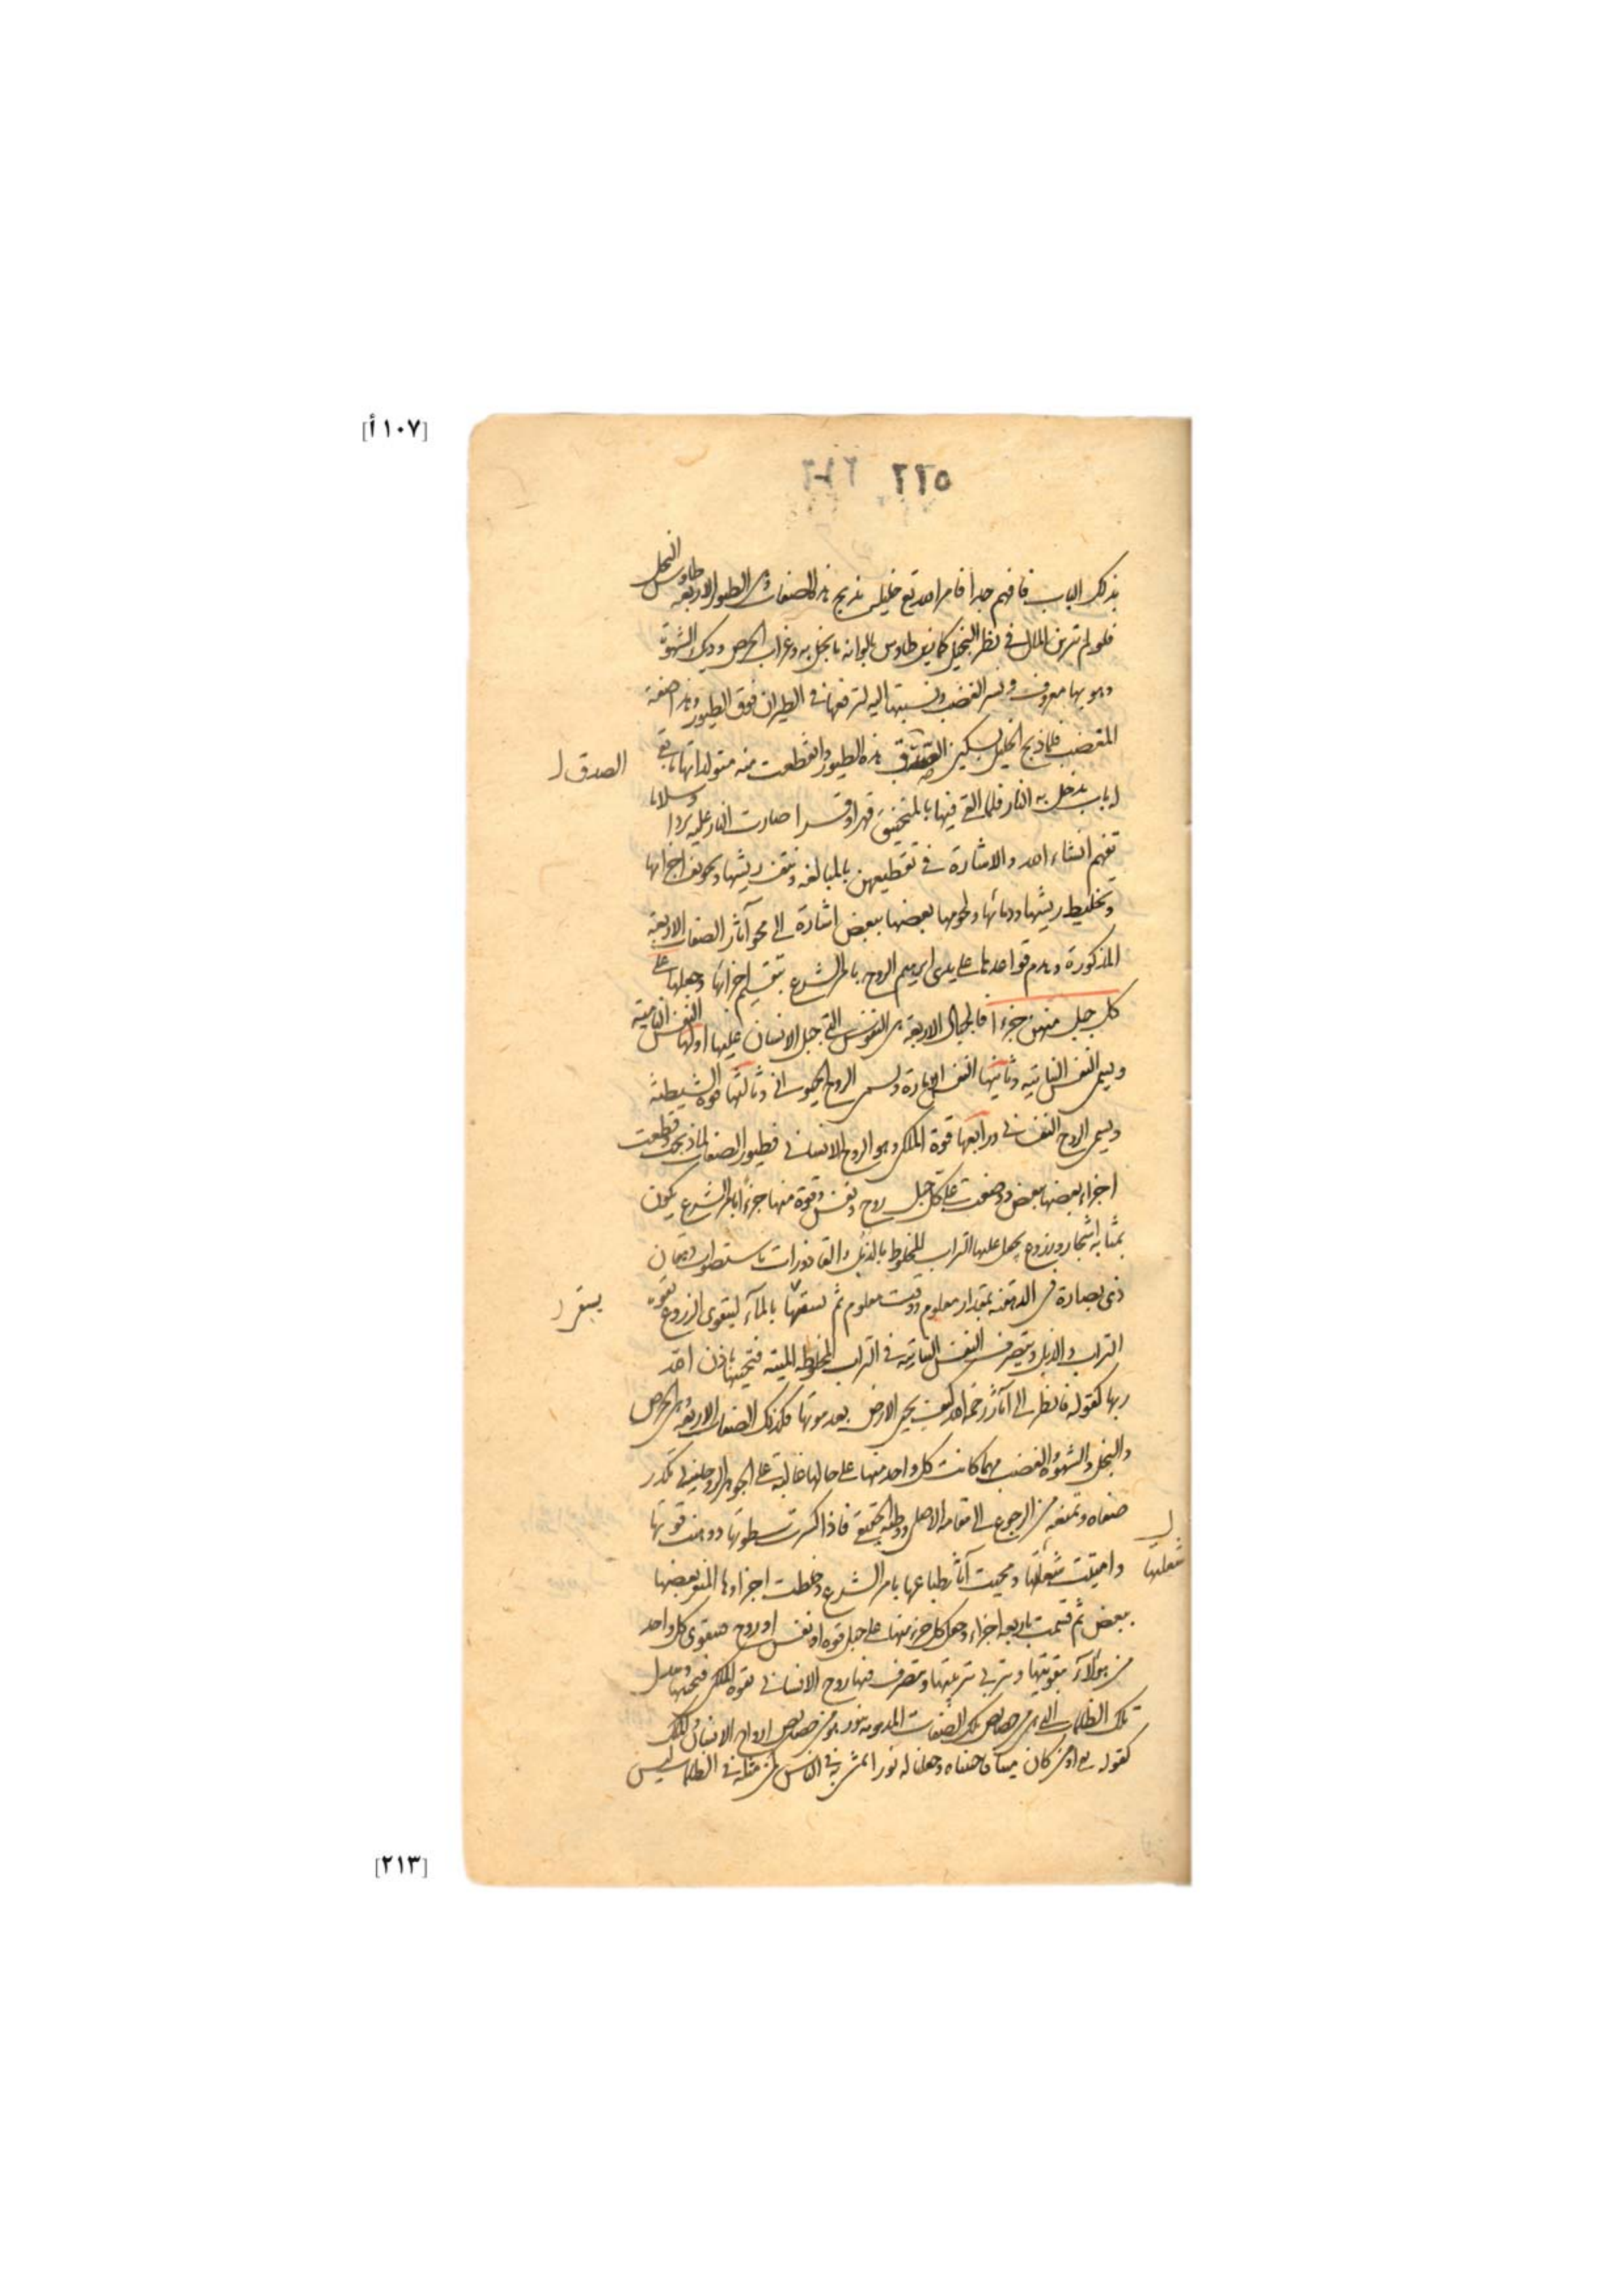 [١٠٧ أ]
٢٢٥
بذلك الباب فافهم جدا فامر الله تع خليله بذبح هذه الصفات وهى الطيور الاربعة طاوس البخل
فلو لم تزين المال فى نظر البخيل كما زين طاوس بالوانه ما بخل به وغراب الحرص وديك الشهوة
وهو بها معروف ونسر الغضب ونسبتها اليه لترفعها فى الطيران فوق الطيور وهذا صفة
المغضب فلما ذبح الخليل بسكين الصدق هذه الطيور وانقطعت منه متولداتها ما بقى
له باب يدخل به النار فلما القى فيها بالمنجنيق قهرا وقسرا صارت النار عليه بردا وسلاما
تفهم انشاء الله والاشارة فى تقطيعهن بالمبالغة ونتف ريشها وتفريق اجزائها
وتخليط ريشها ودمائها ولحومها بعضها ببعض اشارة الى محو آثار الصفات الاربعة
المذكورة وهدم قواعدها على يدى ابرهيم الروح بامر الشرع بتقسيم اجزائها وجعلها على
كل جبل منهن جزءا فالجبال الاربعة هى النفوس التى جبل الانسان عليها اولها النفس النامية
ويسمى النفس النباتيه وثانيها النفس الامارة ويسمى الروح الحيوانى وثالثها قوة الشيطنة
ويسمى الروح النفسانى ورابعها قوة الملكى وهو الروح الانسانى فطيور الصفات لما ذبحت وقطعت
اجزاء بعضها ببعض ووضعت على كل جبل روح ونفس وقوة منها جزءا بامر الشرع يكون
بمثابه اشجار وزروع يجعل عليها التراب المخلوط بالزبل والقاذورات باستصواب دهقان
ذى بصارة فى الدهقنه بمقدار معلوم ووقت معلوم ثم يسقيها بالمآء ليتقوى الزروع بقوه
التراب والزبل ويتصرف النفس النباتيه فى التراب المخلوطه الميته فتحييها باذن الله
ربها كقوله فانظر الى آثار رحمة الله كيف يحيى الارض بعد موتها فكذلك الصفات الاربعة وهى الحرص
والبخل والشهوة والغضب مهما كانت كل واحد منها على حالها غالبة على الجوهر الروحانى تكدر
صفاه وتمنعه من الرجوع الى مقامه الاصلى ووطنه الحقيقى فاذا كسرت سطوتها ووهنت قوتها
واميتت شعلتها ومحيت آثار طباعها بامر الشرع وخلطت اجزاوها المتفرقة بعضها
ببعض ثم قسمت باربعة اجزاء وجعل كل جزء منها على جبل قوة او نفس او روح فيتقوى كل واحد
من هؤلآء بتقويتها ويتربى بتربيتها ويتصرف فيها روح الانسانى بقوه الملكى فيحييها ويبدل
تلك الظلمات التى هى من خصايص تلك الصفات المذمومه بنور هو من خصايص الروح الانسانى والملكى
كقوله تع اومن كان ميتا فاحييناه وجعلنا له نورا يمشى به فى الناس كمن مثله فى الظلمات ليس
الصدق
شعلتها
[٢١٣]